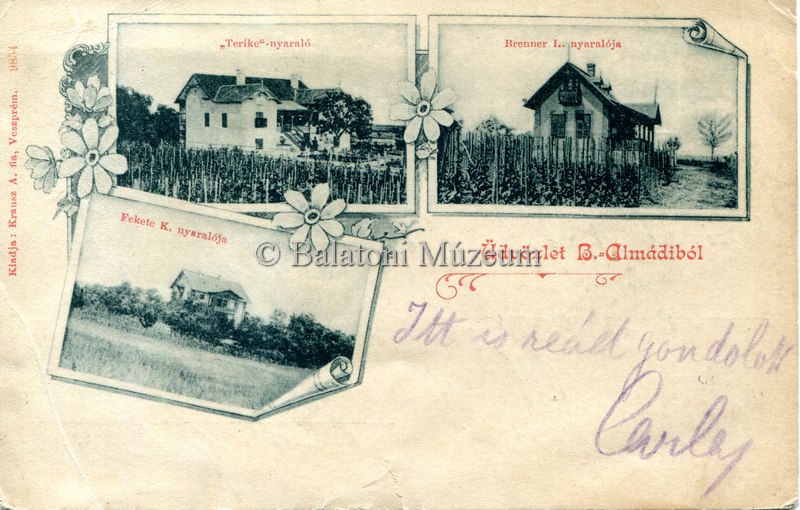 „Terike"-nyaraló
Brenner L. nyaralója
Fekete K. nyaralója
Kiadja: Krausz A. fia, Veszprém. 9854
© Balatoni Múzeum
Üdvözlet B.-Almádiból
Itt is reád gondolok